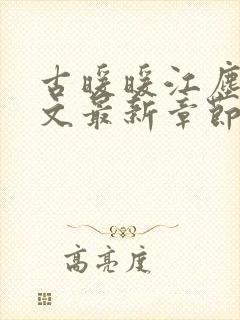 古暖暖江塵
文最新章節
高亮度